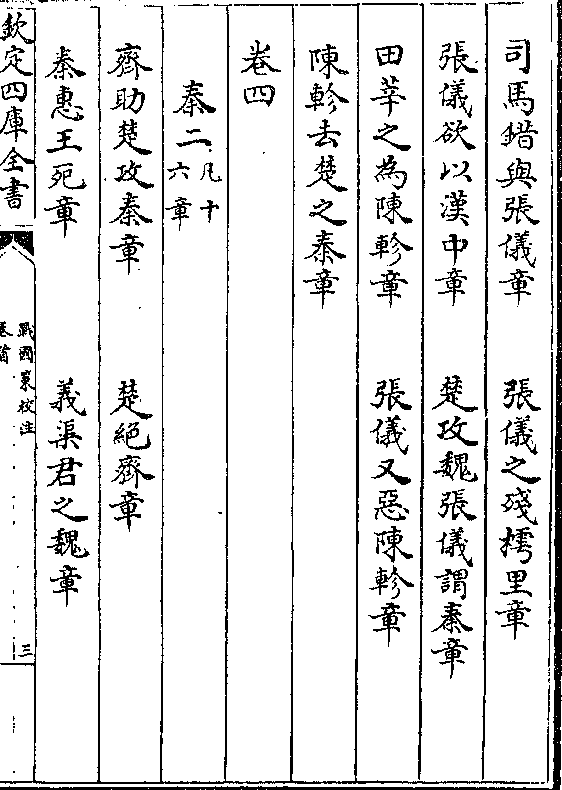 司馬錯與張儀章　張儀之殘樗里章
張儀欲以漢中章　楚攻魏張儀謂秦章
田莘之為陳軫章　張儀又惡陳軫章
陳軫去楚之秦章
卷四
秦二凡十六章
齊助楚攻秦章　楚絕齊章
秦惠王死章　義渠君之魏章
欽定四庫全書
戰國策校注
卷首
三